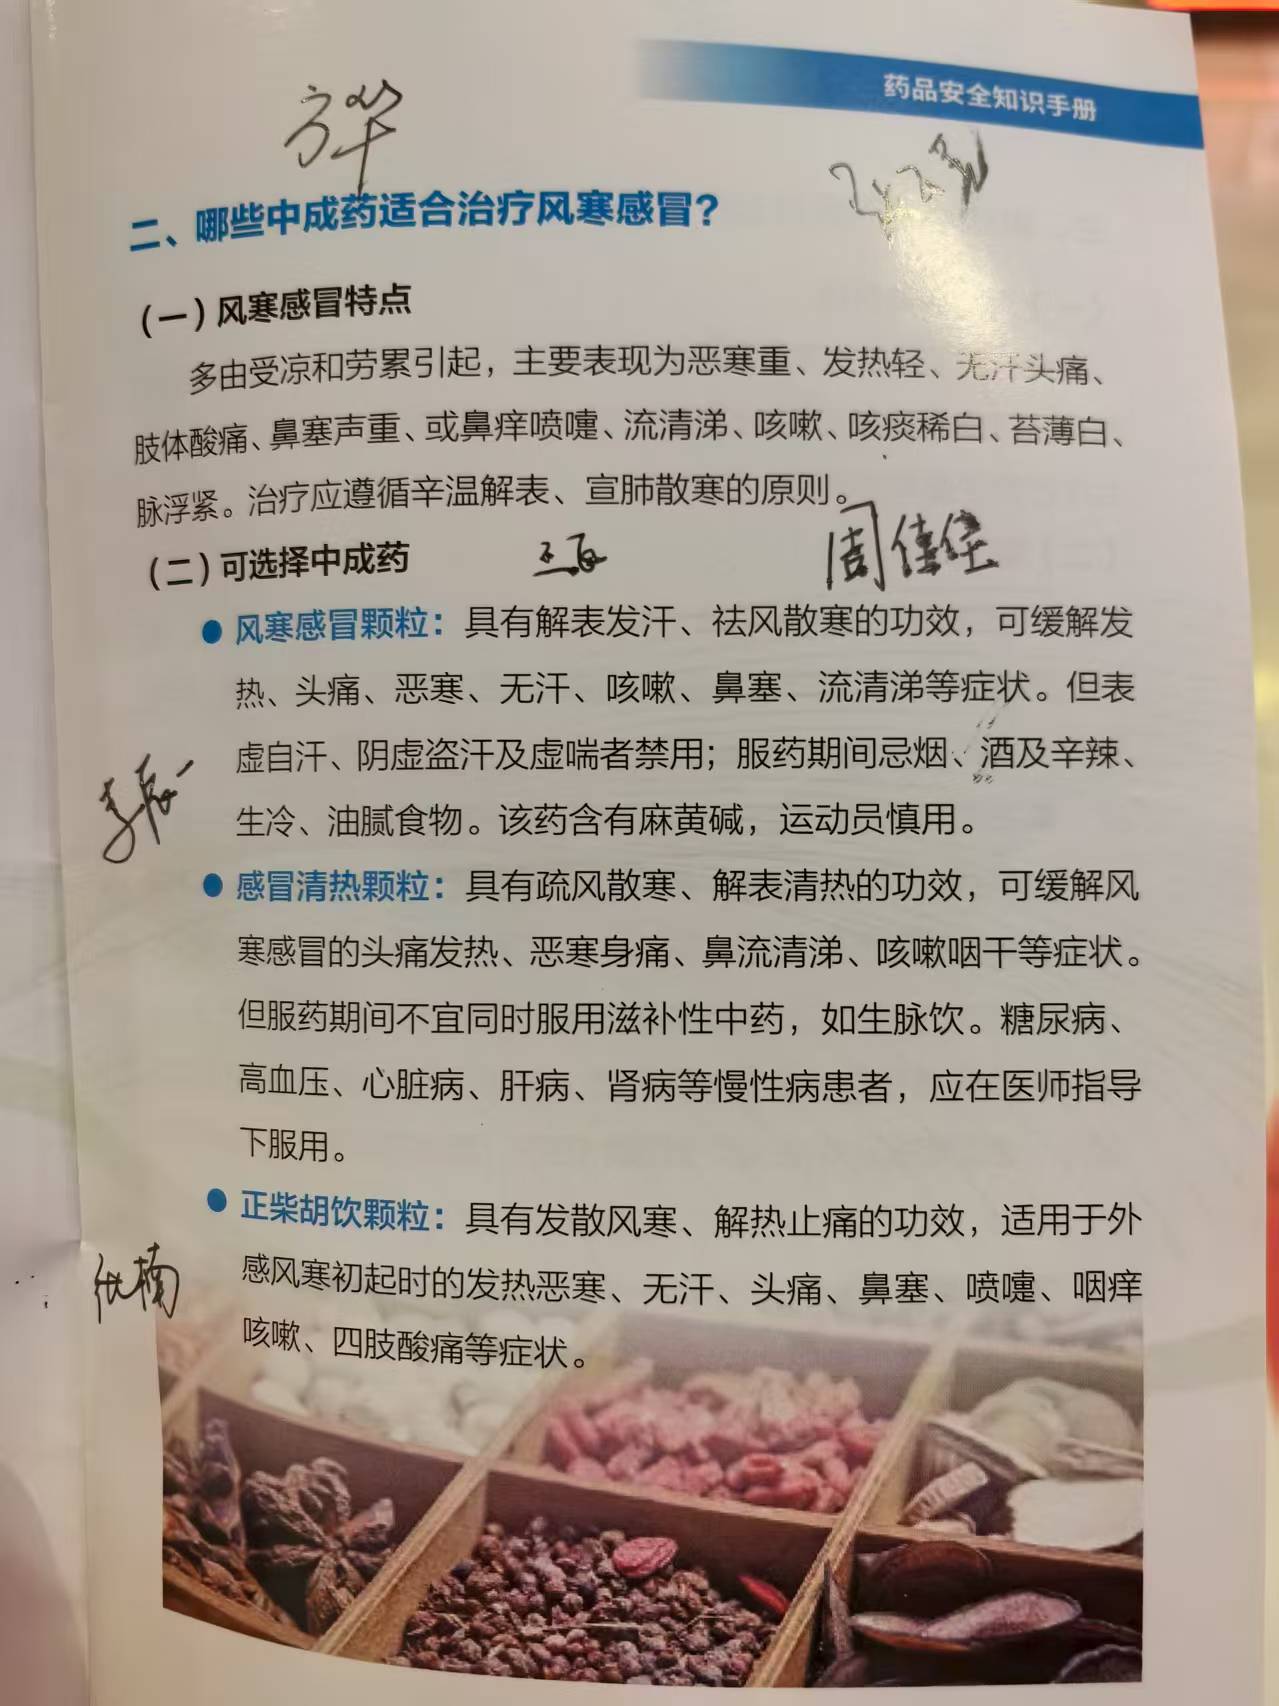 药品安全知识手册
方华
二、哪些中成药适合治疗风寒感冒?
(一)风寒感冒特点
多由受凉和劳累引起，主要表现为恶寒重、发热轻、无汗头痛、
肢体酸痛、鼻塞声重、或鼻痒喷嚏、流清涕、咳嗽、咳痰稀白、苔薄白、
脉浮紧。治疗应遵循辛温解表、宣肺散寒的原则。
(二)可选择中成药
● 风寒感冒颗粒：具有解表发汗、祛风散寒的功效，可缓解发
热、头痛、恶寒、无汗、咳嗽、鼻塞、流清涕等症状。但表
虚自汗、阴虚盗汗及虚喘者禁用；服药期间忌烟、酒及辛辣、
生冷、油腻食物。该药含有麻黄碱，运动员慎用。
● 感冒清热颗粒：具有疏风散寒、解表清热的功效，可缓解风
寒感冒的头痛发热、恶寒身痛、鼻流清涕、咳嗽咽干等症状。
但服药期间不宜同时服用滋补性中药，如生脉饮。糖尿病、
高血压、心脏病、肝病、肾病等慢性病患者，应在医师指导
下服用。
● 正柴胡饮颗粒：具有发散风寒、解热止痛的功效，适用于外
感风寒初起时的发热恶寒、无汗、头痛、鼻塞、喷嚏、咽痒
咳嗽、四肢酸痛等症状。